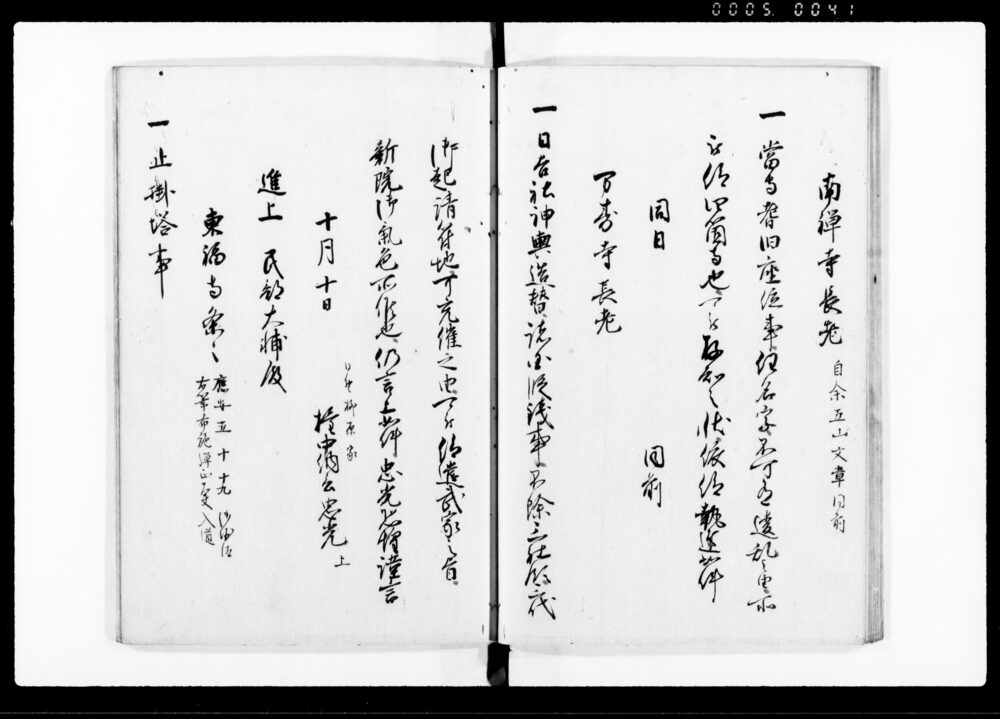 0005 0041
南禅寺長老 自余五山文章同前
一當寺耆旧座位事任名字不可有違乱之由所
被仰四箇寺也可被存知之状依仰執達如件
同日 同前
万寿寺長老
一日吉社神輿造替諸国段銭事不除三社領
御起請符地可充催之由可被仰遣武家之旨
新院御氣色所候也仍言上如件忠光恐惶謹言
十月十日 権中納言忠光上
日野柳原家
進上 民部大輔殿
一止掛塔事
東福寺条々 應安五十十九
右筆布施弾正入道